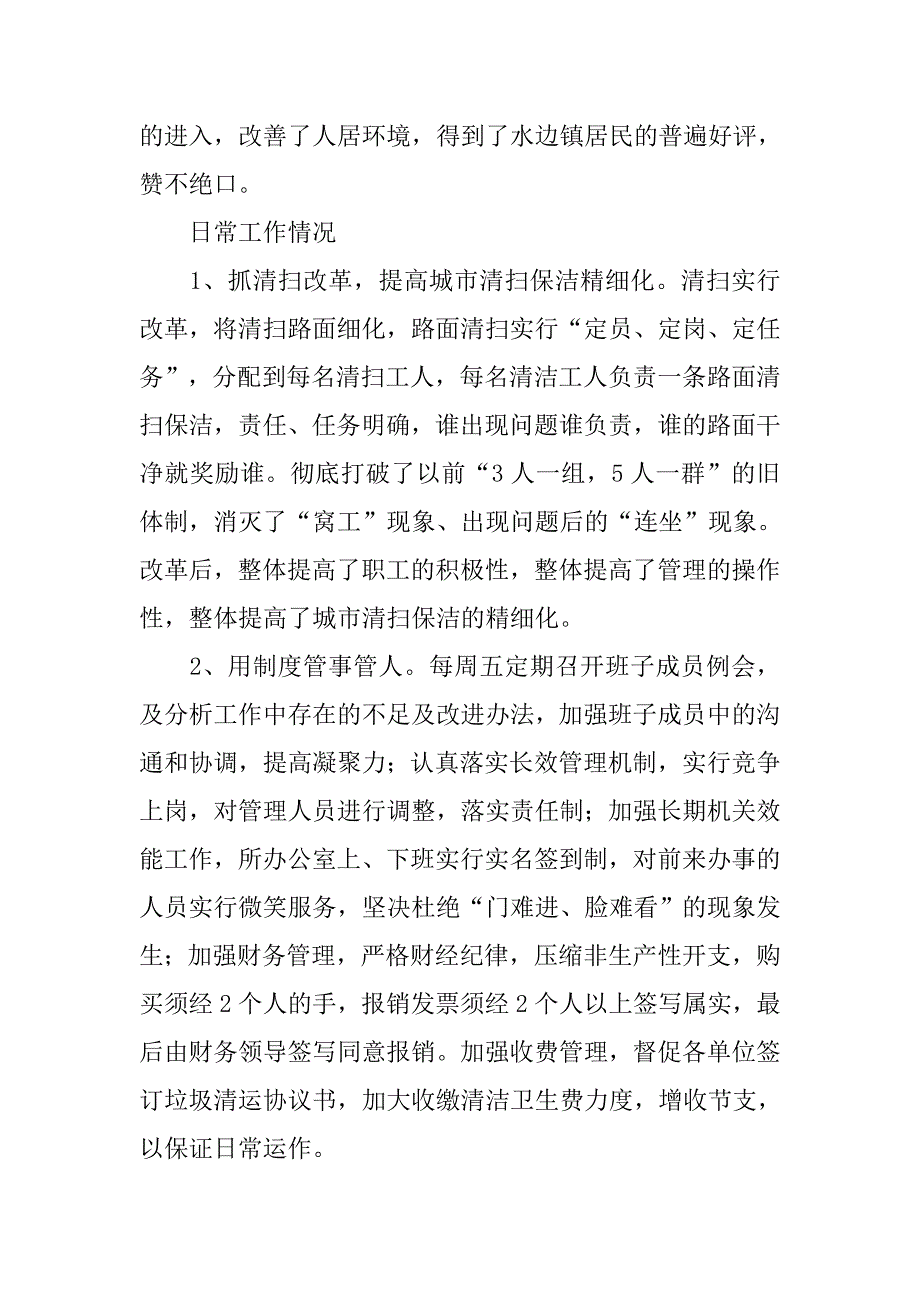 的进入，改善了人居环境，得到了水边镇居民的普遍好评，
赞不绝口。
日常工作情况
1、抓清扫改革，提高城市清扫保洁精细化。清扫实行
改革，将清扫路面细化，路面清扫实行“定员、定岗、定任
务”，分配到每名清扫工人，每名清洁工人负责一条路面清
扫保洁，责任、任务明确，谁出现问题谁负责，谁的路面干
净就奖励谁。彻底打破了以前“3 人一组，5 人一群”的旧
体制，消灭了“窝工”现象、出现问题后的“连坐”现象。
改革后，整体提高了职工的积极性，整体提高了管理的操作
性，整体提高了城市清扫保洁的精细化。
2、用制度管事管人。每周五定期召开班子成员例会，
及分析工作中存在的不足及改进办法，加强班子成员中的沟
通和协调，提高凝聚力；认真落实长效管理机制，实行竞争
上岗，对管理人员进行调整，落实责任制；加强长期机关效
能工作，所办公室上、下班实行实名签到制，对前来办事的
人员实行微笑服务，坚决杜绝“门难进、脸难看”的现象发
生；加强财务管理，严格财经纪律，压缩非生产性开支，购
买须经 2 个人的手，报销发票须经 2 个人以上签写属实，最
后由财务领导签写同意报销。加强收费管理，督促各单位签
订垃圾清运协议书，加大收缴清洁卫生费力度，增收节支，
以保证日常运作。